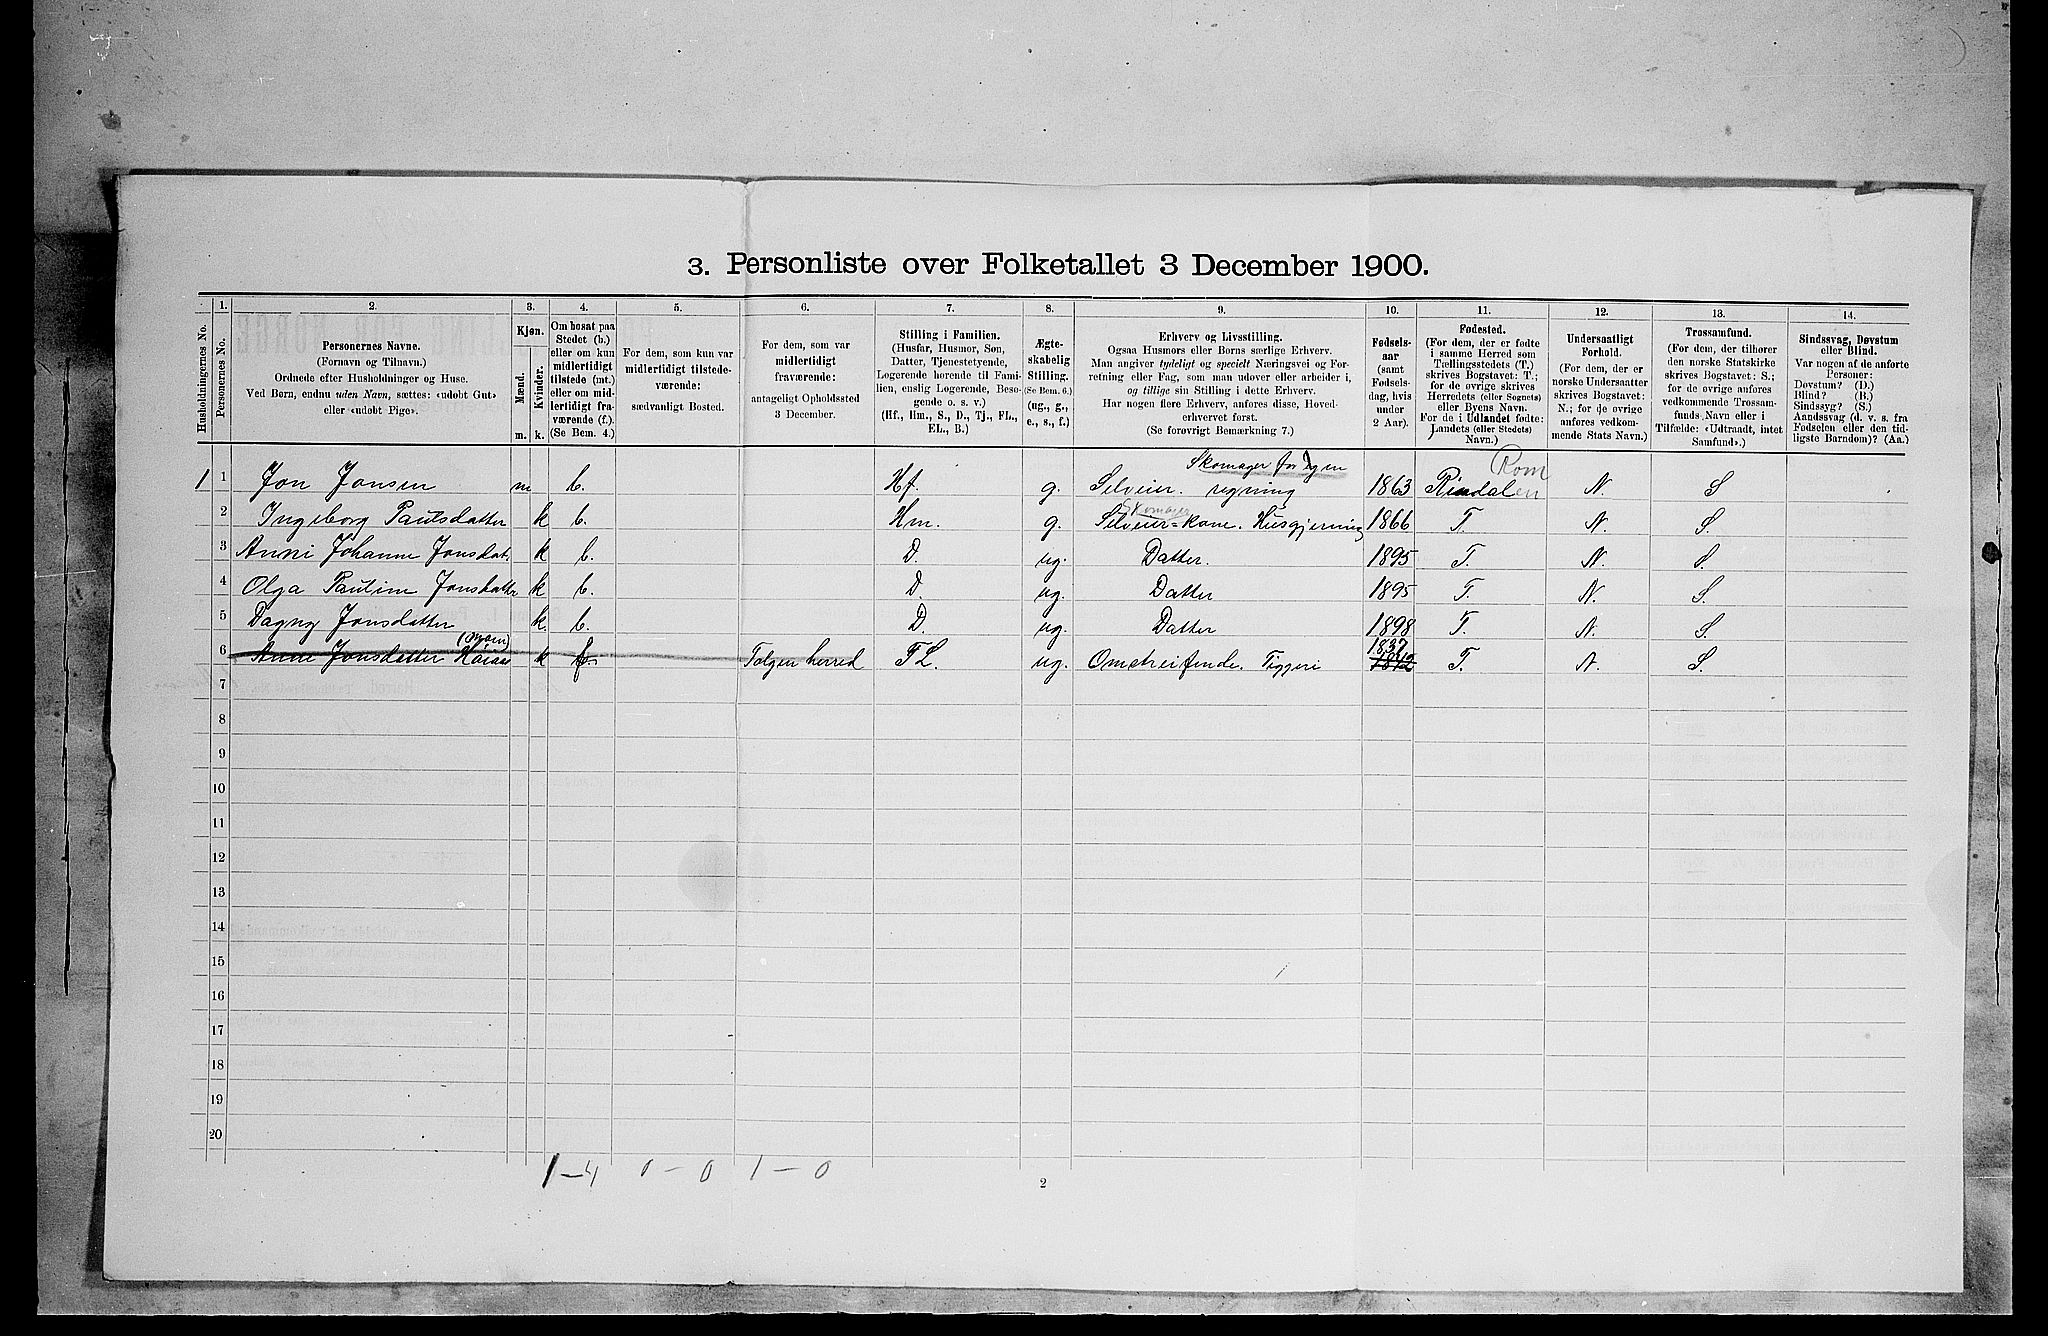 3. Personliste over Folketallet 3 December 1900.
Husholdningernes No.
1.
Personernes No.
2.
Personernes Navne.
(Fornavn og Tilnavn.)
Ordnede efter Husholdninger og Huse.
Ved Børn, endnu uden Navn, sættes: «udøbt Gut»
eller «udøbt Pige».
3.
Kjøn.
Mænd.
Kvinder.
m.
k.
4.
Om bosat paa
Stedet (b.)
eller om kun
midlertidigt
tilstede (mt.)
eller om mid-
lertidigt fra-
værende (f.).
(Se Bem. 4.)
5.
For dem, som kun var
midlertidigt tilstede-
værende:
sædvanligt Bosted.
6.
For dem, som var
midlertidigt
fraværende:
antageligt Opholdssted
3 December.
7.
Stilling i Familien.
(Husfar, Husmor, Søn,
Datter, Tjenestetyende,
Logerende hørende til Fami-
lien, enslig Logerende, Besø-
gende o. s. v.)
(Hf., Hm., S., D., Tj., FL.,
EL., B.)
8.
Ægte-
skabelig
Stilling.
(Se Bem. 6.)
(ug., g.,
e., s., f.)
9.
Erhverv og Livsstilling.
Ogsaa Husmors eller Børns særlige Erhverv.
Man angiver tydeligt og specielt Næringsvei og For-
retning eller Fag, som man udøver eller arbeider i,
og tillige sin Stilling i dette Erhverv.
Har nogen flere Erhverv, anføres disse, Hoved-
erhvervet først.
(Se forøvrigt Bemærkning 7.)
10.
Fødsels-
aar
(samt
Fødsels-
dag, hvis
under
2 Aar).
11.
Fødested.
(For dem, der er fødte
i samme Herred som
Tællingsstedets (T.)
skrives Bogstavet: T.;
for de øvrige skrives
Herredets (eller Sognets)
eller Byens Navn.
For de i Udlandet fødte:
Landets (eller Stedets)
Navn.)
12.
Undersaatligt
Forhold.
(For dem, der er
norske Undersaatter
skrives Bogstavet:
N.; for de øvrige
anføres vedkom-
mende Stats Navn.)
13.
Trossamfund.
(For dem, der tilhører
den norske Statskirke
skrives Bogstavet: S.;
for de øvrige anføres
vedkommende Trossam-
funds Navn eller i
Tilfælde: «Udtraadt, intet
Samfund».)
14.
Sindssvag, Døvstum
eller Blind.
Var nogen af de anførte
Personer:
Døvstum? (D.)
Blind? (B.)
Sindssyg? (S.)
Aandssvag (d. v. s. fra
Fødselen eller den tid-
ligste Barndom)? (Aa.)
Skomager for egen Rom
1 1 Jon Jonsen m b. Hf. g. Selveier. regning 1863 Rindalen N. S
Skomager
2 Ingeborg Paulsdatter k b. Hm. g. Selveier=kone. Husgjerning 1866 T. N. S.
3 Anni Johanne Jonsdat. k b. D. ug. Datter. 1895 T. N. S.
4 Olga Pauline Jonsdatter k b. D. ug. Datter 1895 T. N. S.
5 Dagny Jonsdatter k. b. D. ug. Datter 1898 T. N. S.
1837
6 Anne Jonsdatter k f. Tolgen herred FL. ug. Omstreifende. Tiggeri 1842 T. N. S.
7
8
9
10
11
12
13
14
15
16
17
18
19
20
1–4 0–0 1–0
2